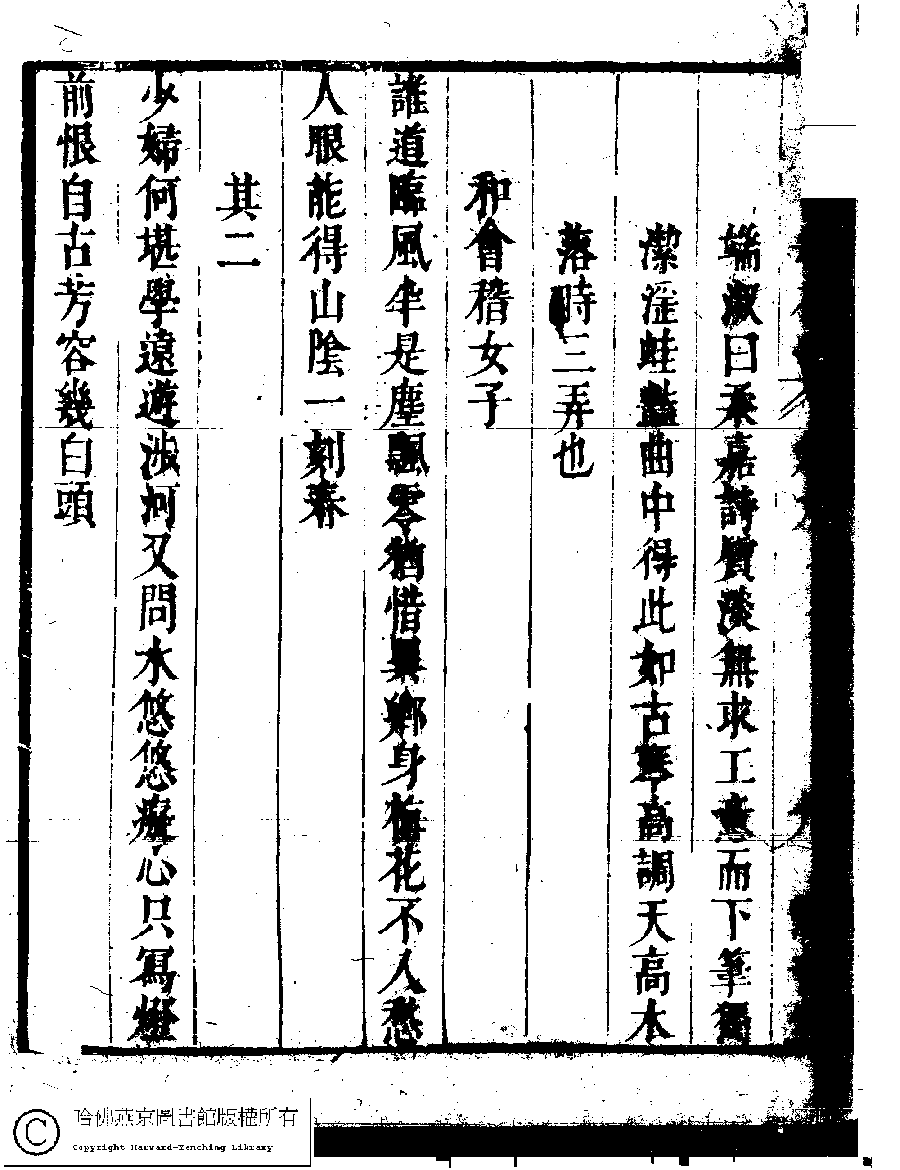 端淑曰承嘉詩質淡無求工意而下筆獨
潔淫蛙豔曲中得此如古琴高調天高木
落時三弄也
和會稽女子
誰道臨風伴是塵飄零猶惜異鄉身梅花不入愁
人眼能得山陰一刻春
其二
少婦何堪學遠遊涉河又問水悠悠癡心只寫燈
前恨自古芳容幾白頭
哈佛燕京圖書館版權所有
Copyright Harvard-Yenching Library